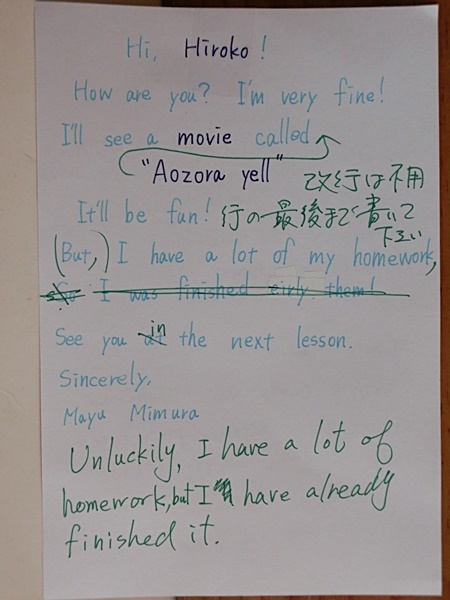 Hi, Hiroko!
How are you? I'm very fine!
I'll see a movie called
"Aozora yell"
改行は不用
It'll be fun! 行の最後まで書いて
下さい
(But,) I have a lot of my homework,
So I was finished eirly them!
See you at in the next lesson.
Sincerely,
Mayu Mimura
Unluckily, I have a lot of
homework, but I have already
finished it.